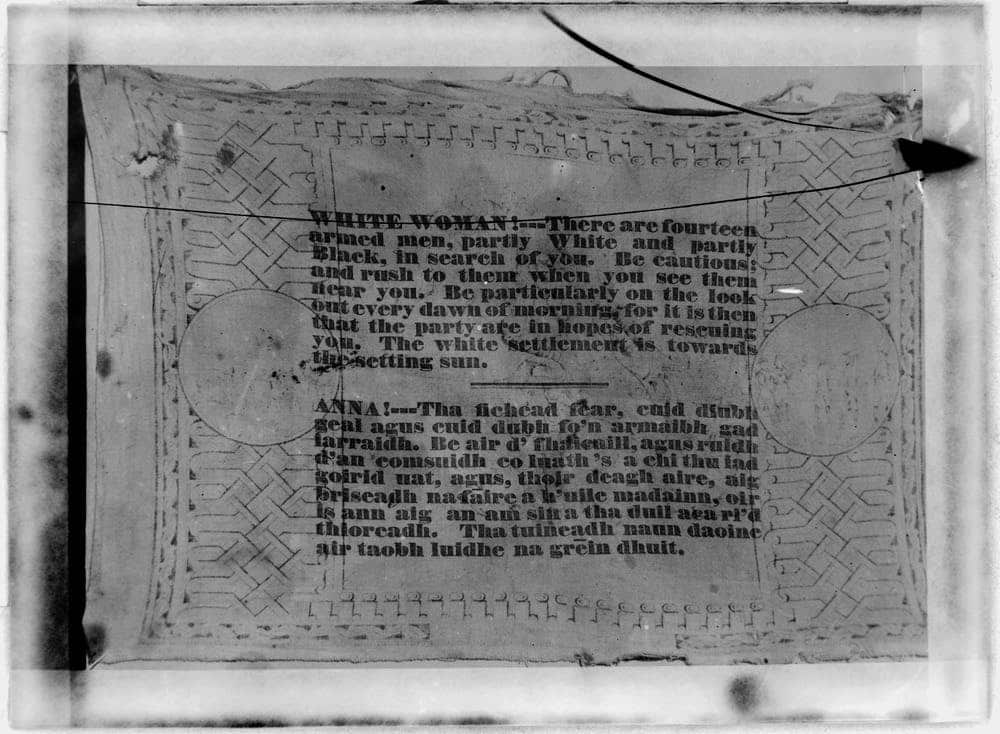 WHITE WOMAN!---There are fourteen
armed men, partly White and partly
Black, in search of you. Be cautious;
and rush to them when you see them
near you. Be particularly on the look
out every dawn of morning, for it is then
that the party are in hopes of rescuing
you. The white settlement is towards
the setting sun.
ANNA!---Tha fichead fear, cuid dhubh
geal agus cuid dubh fo'n armaibh gad
iarraidh. Be air d' fhaicaill, agus ruidh
d'an comsuidh co luath 's a chi thu iad
goirid uat, agus, thoir deagh aire, aig
briseadh na faire a h'uile madainn, oir
is ann aig an am sin a tha duil aca ri'd
thiorcadh. Tha tuineadh naun daoine
air taobh luidhe na grēin dhuit.